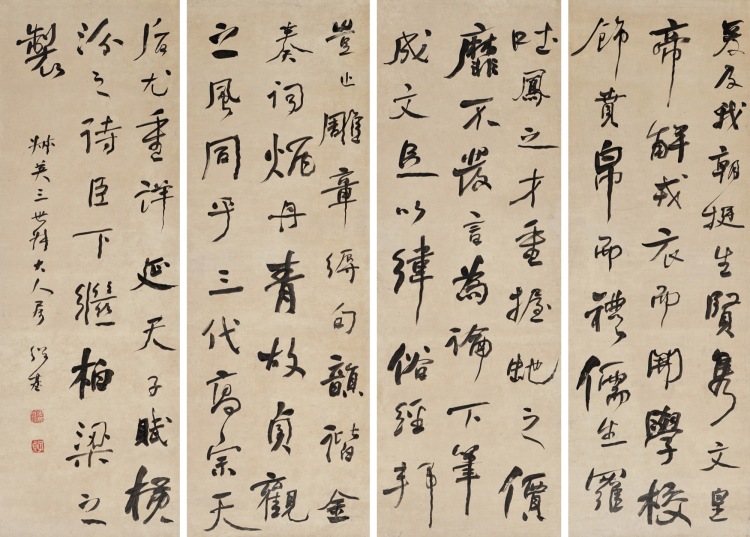 爰及我朝挺生賢雋文皇
帝解戎衣而開學校
飾賁帛而禮儒生羅
吐鳳之才重握虵之價
靡不發言為論下筆
成文足以緯俗經邦
豈止雕章縟句韻諧金
奏詞炳丹青故貞觀
之風同乎三代高宗天
后尤重詳延天子賦橫
汾之詩臣下繼柏梁之
製
英三世講大人屬 紹基